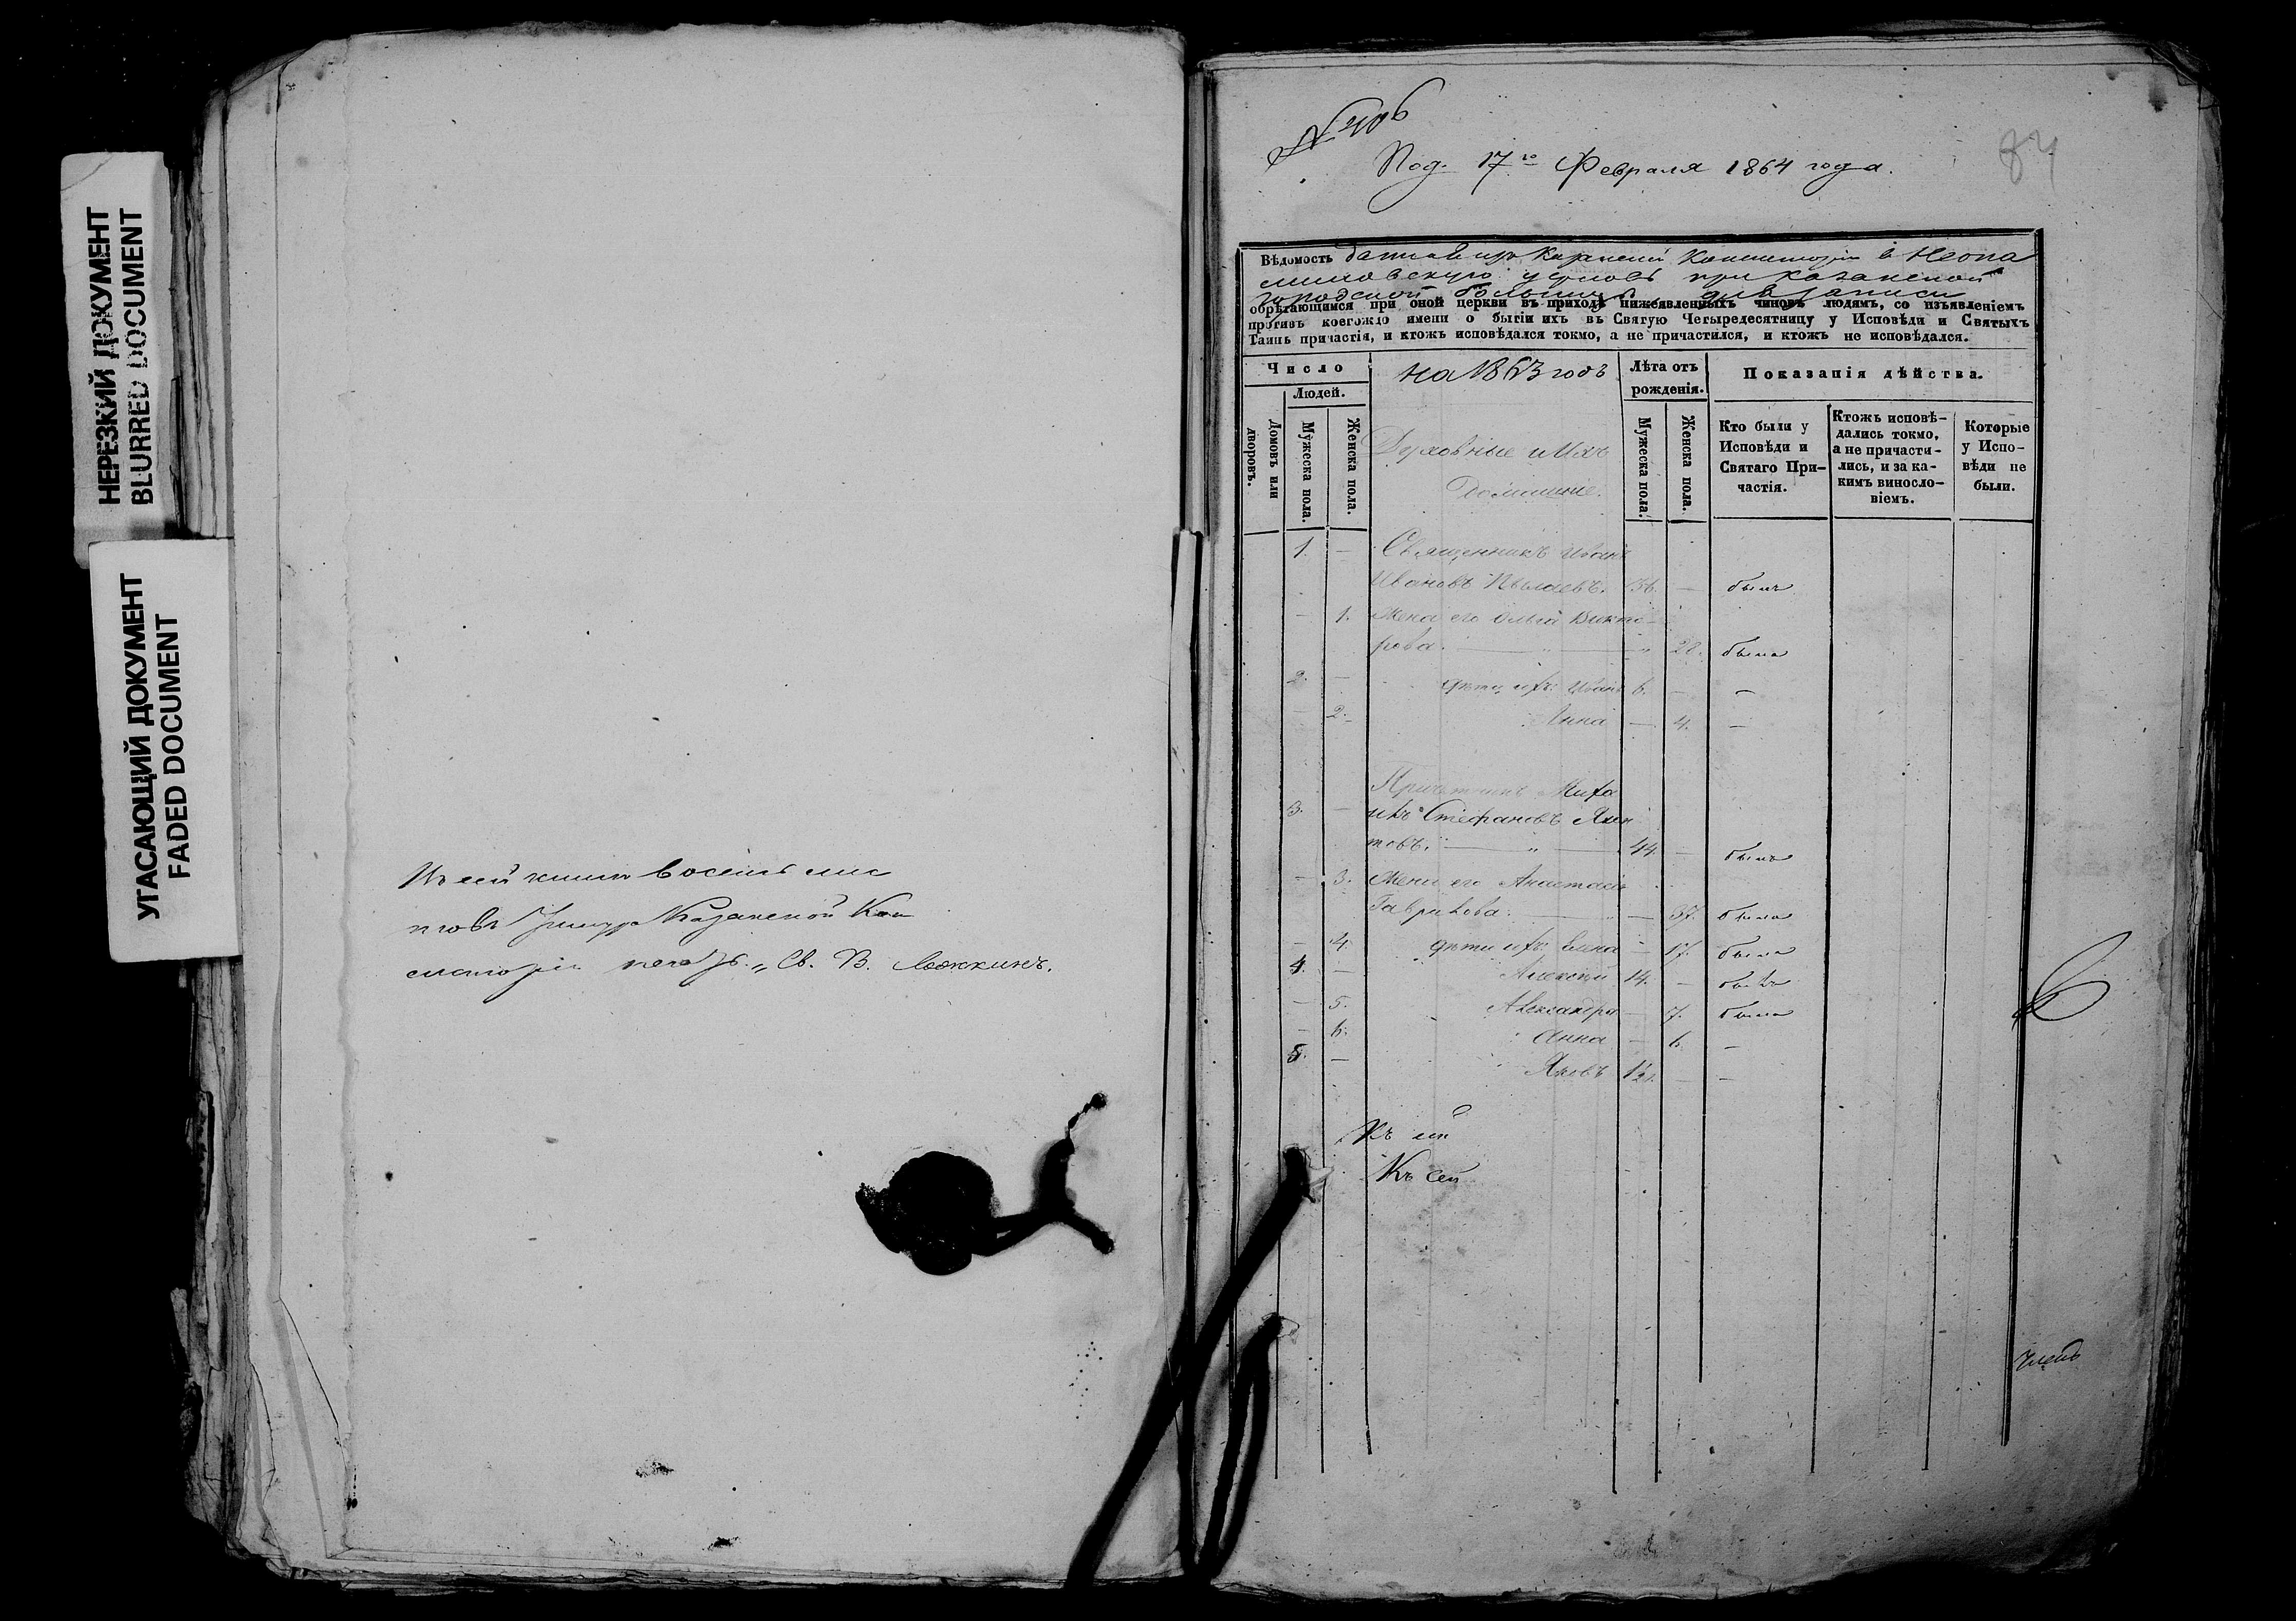 НЕРЕЗКИЙ ДОКУМЕНТ
BLURRED DOCUMENT
УГАСАЮЩИЙ ДОКУМЕНТ
FADED DOCUMENT
Въ сей книги восемь лис
товъ Казанской Кон
систоріи Св. В.
№ 406
84
Под. 17го Февраля 1864 года.
Вѣдомость данная изъ Казанской Консисторіи в
церковь при казанской
городской больницѣ для записи
обрѣтающимся при оной церкви въ приходѣ нижеявленныхъ чиновъ людямъ, со изъявленіемъ
противъ коегождо имени о бытіи ихъ въ Святую Четыредесятницу у Исповѣди и Святыхъ
Таинъ причастія, и ктожъ исповѣдался токмо, а не причастился, и ктожъ не исповѣдался.
Число
Людей.
Домовъ или дворовъ.
Мужеска пола.
Женска пола.
на 1863 годъ
Духовные и Ихъ
Домашніе.
Лѣта отъ рожденія.
Мужеска пола.
Женска пола.
Показанія дѣйства.
Кто были у Исповѣди и Святаго При-частія.
Ктожъ исповѣ-дались токмо, а не причасти-лись, и за ка-кимъ винословіемъ.
Которые у Испо-вѣди не были.
1. — Священникъ Иванъ
Ивановъ 36. — былъ
— 1. Жена его Ольга Викто
рова. — 28. была
2. — дѣти ихъ: Иванъ 6. — —
— 2. Анна — 4. —
Причетникъ Миха
3. — илъ Стефановъ
товъ. 44. — былъ
— 3. Жена его Анастасія
Гаврилова. — 37. была
— 4. дѣти ихъ: Елена — 17. была
4. — Алексѣй 14. — былъ
— 5. Александра — 7. была
— 6. Анна — 6. —
5. — Яковъ 1½. — —
Къ сей
Къ сей
Членъ